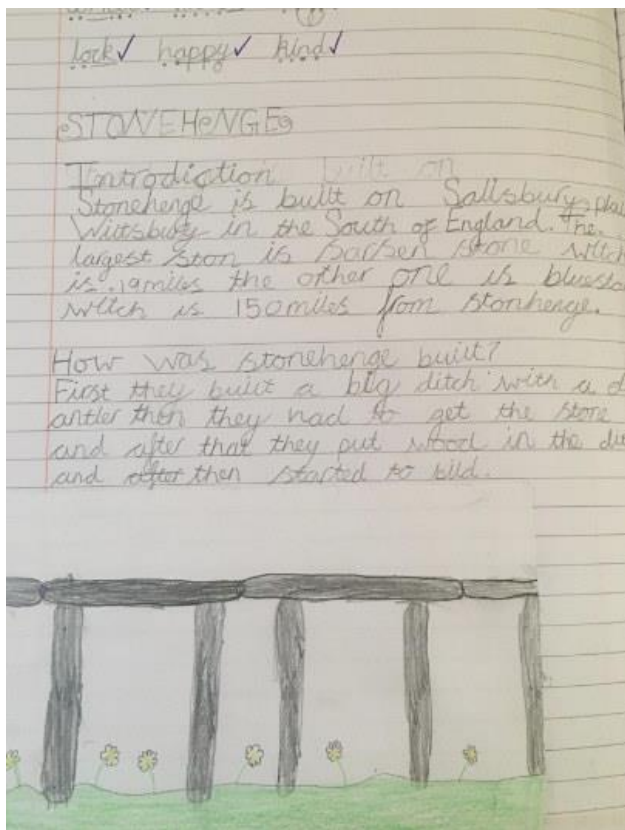 lock✓ happy✓ kind✓
STONEHENGE
Introdiction built on
Stonehenge is built on Sallsbury plai
Wiltsbury in the South of England. The
largest ston is sarsen stone witch
is 19miles the other one is bluesto
witch is 150miles from stonhenge.
How was stonehenge built?
First they built a big ditch with a d
antler then they had to get the stone
and after that they put wood in the dit
and after then started to bild.